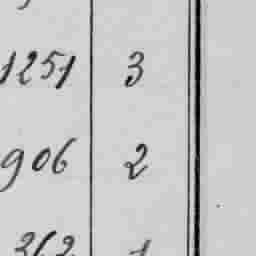 1251 3
906 2
362 1